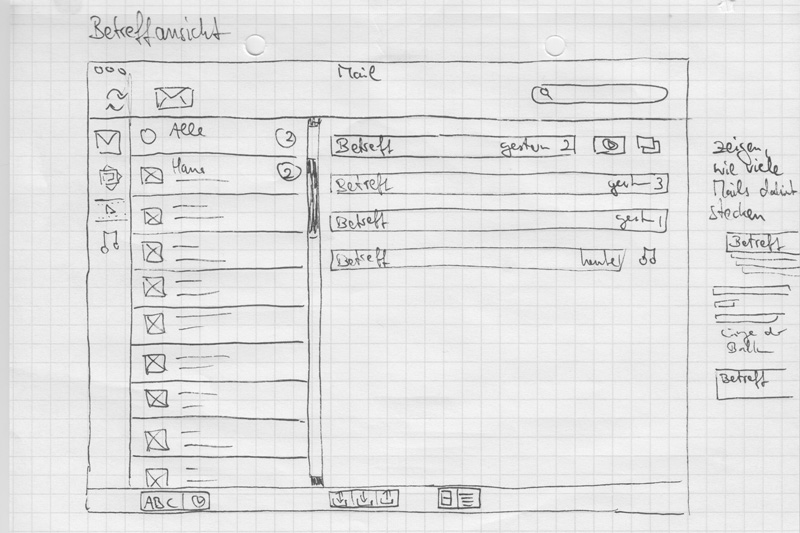 Betreffansicht
Mail
Alle 2
2
Betreff gestern 2
Betreff gestern 3
Betreff gestern 1
Betreff heute 1
ABC
zeigen,
wie viele
Mails dahinter
stecken
Betreff
Länge der
Balken
Betreff